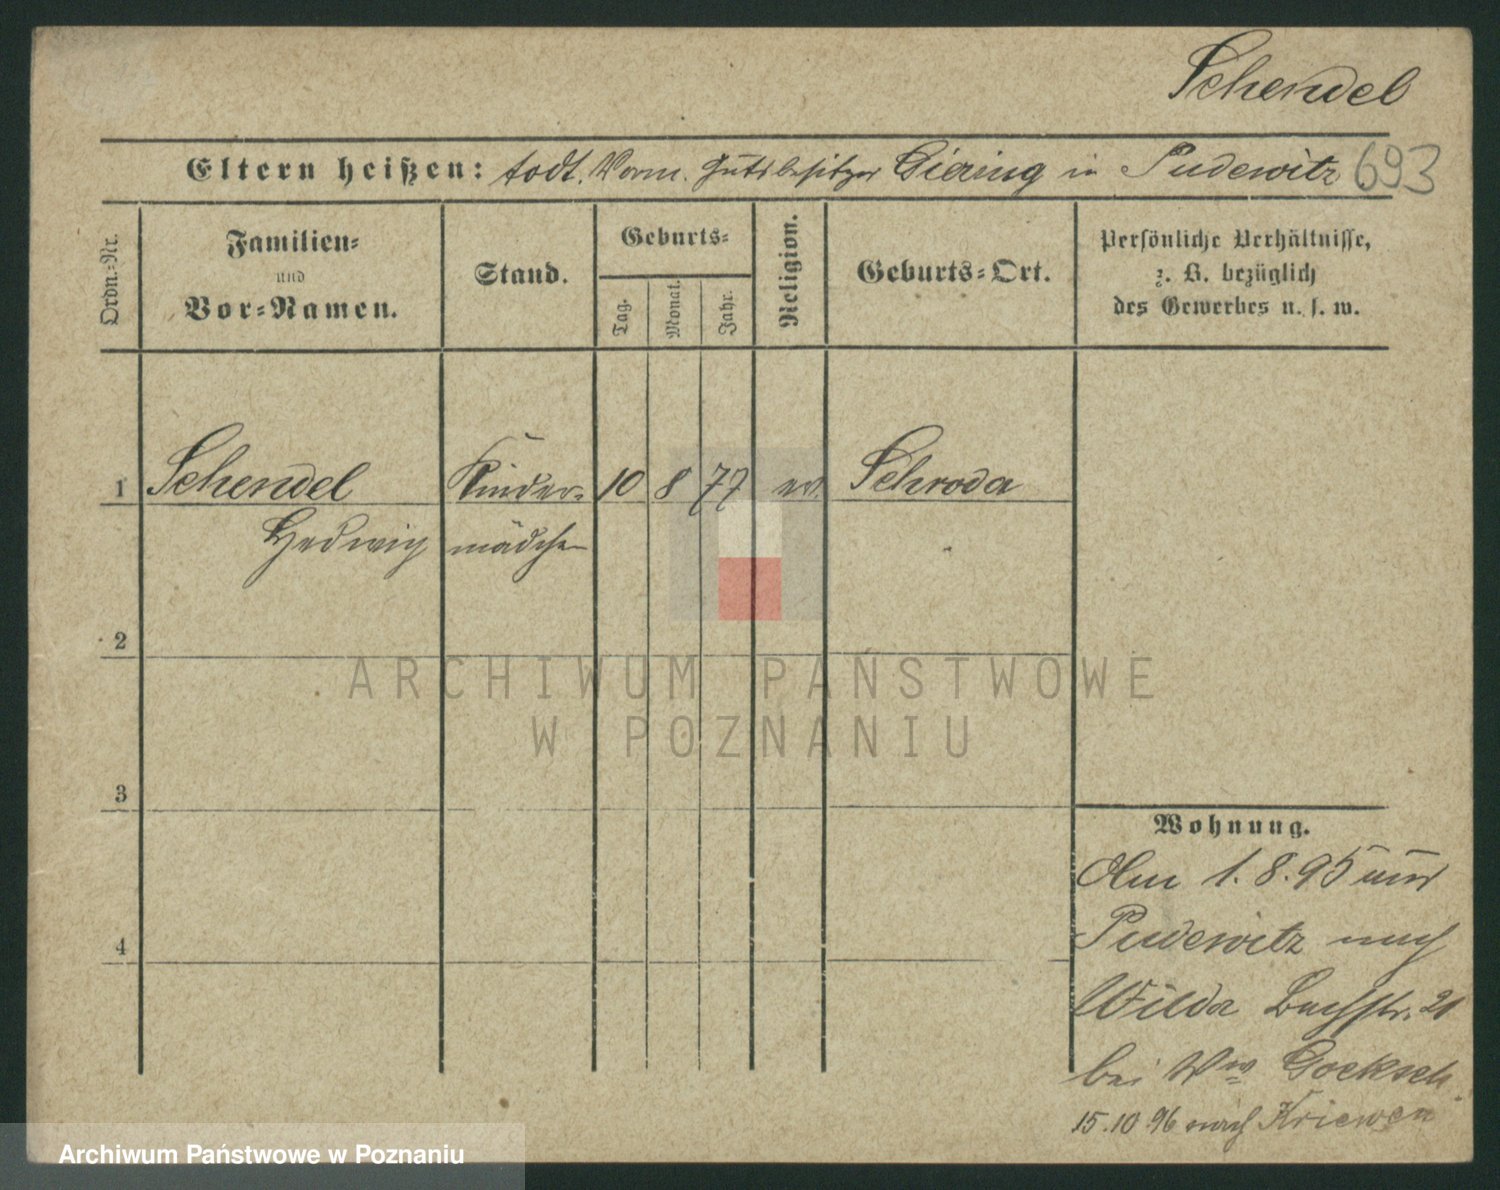 Schendel
Eltern heißen: todt. Vorm. Gutsbesitzer Giering in Pudewitz 693
Ordn.-Nr.
Familien-
und
Vor-Namen.
Stand.
Geburts-
Tag.
Monat.
Jahr.
Religion.
Geburts-Ort.
Persönliche Verhältnisse,
z. B. bezüglich
des Gewerbes u. s. w.
1 Schendel Kinder- 10 8 77 ev. Schroda
Hedwig mädchen
2
ARCHIWUM PAŃSTWOWE
W POZNANIU
3
Wohnung.
Am 1.8.95 aus
Pudewitz nach
4
Wilda Bachstr. 21
bei Ww
15.10 96 nach Kriewen
Archiwum Państwowe w Poznaniu